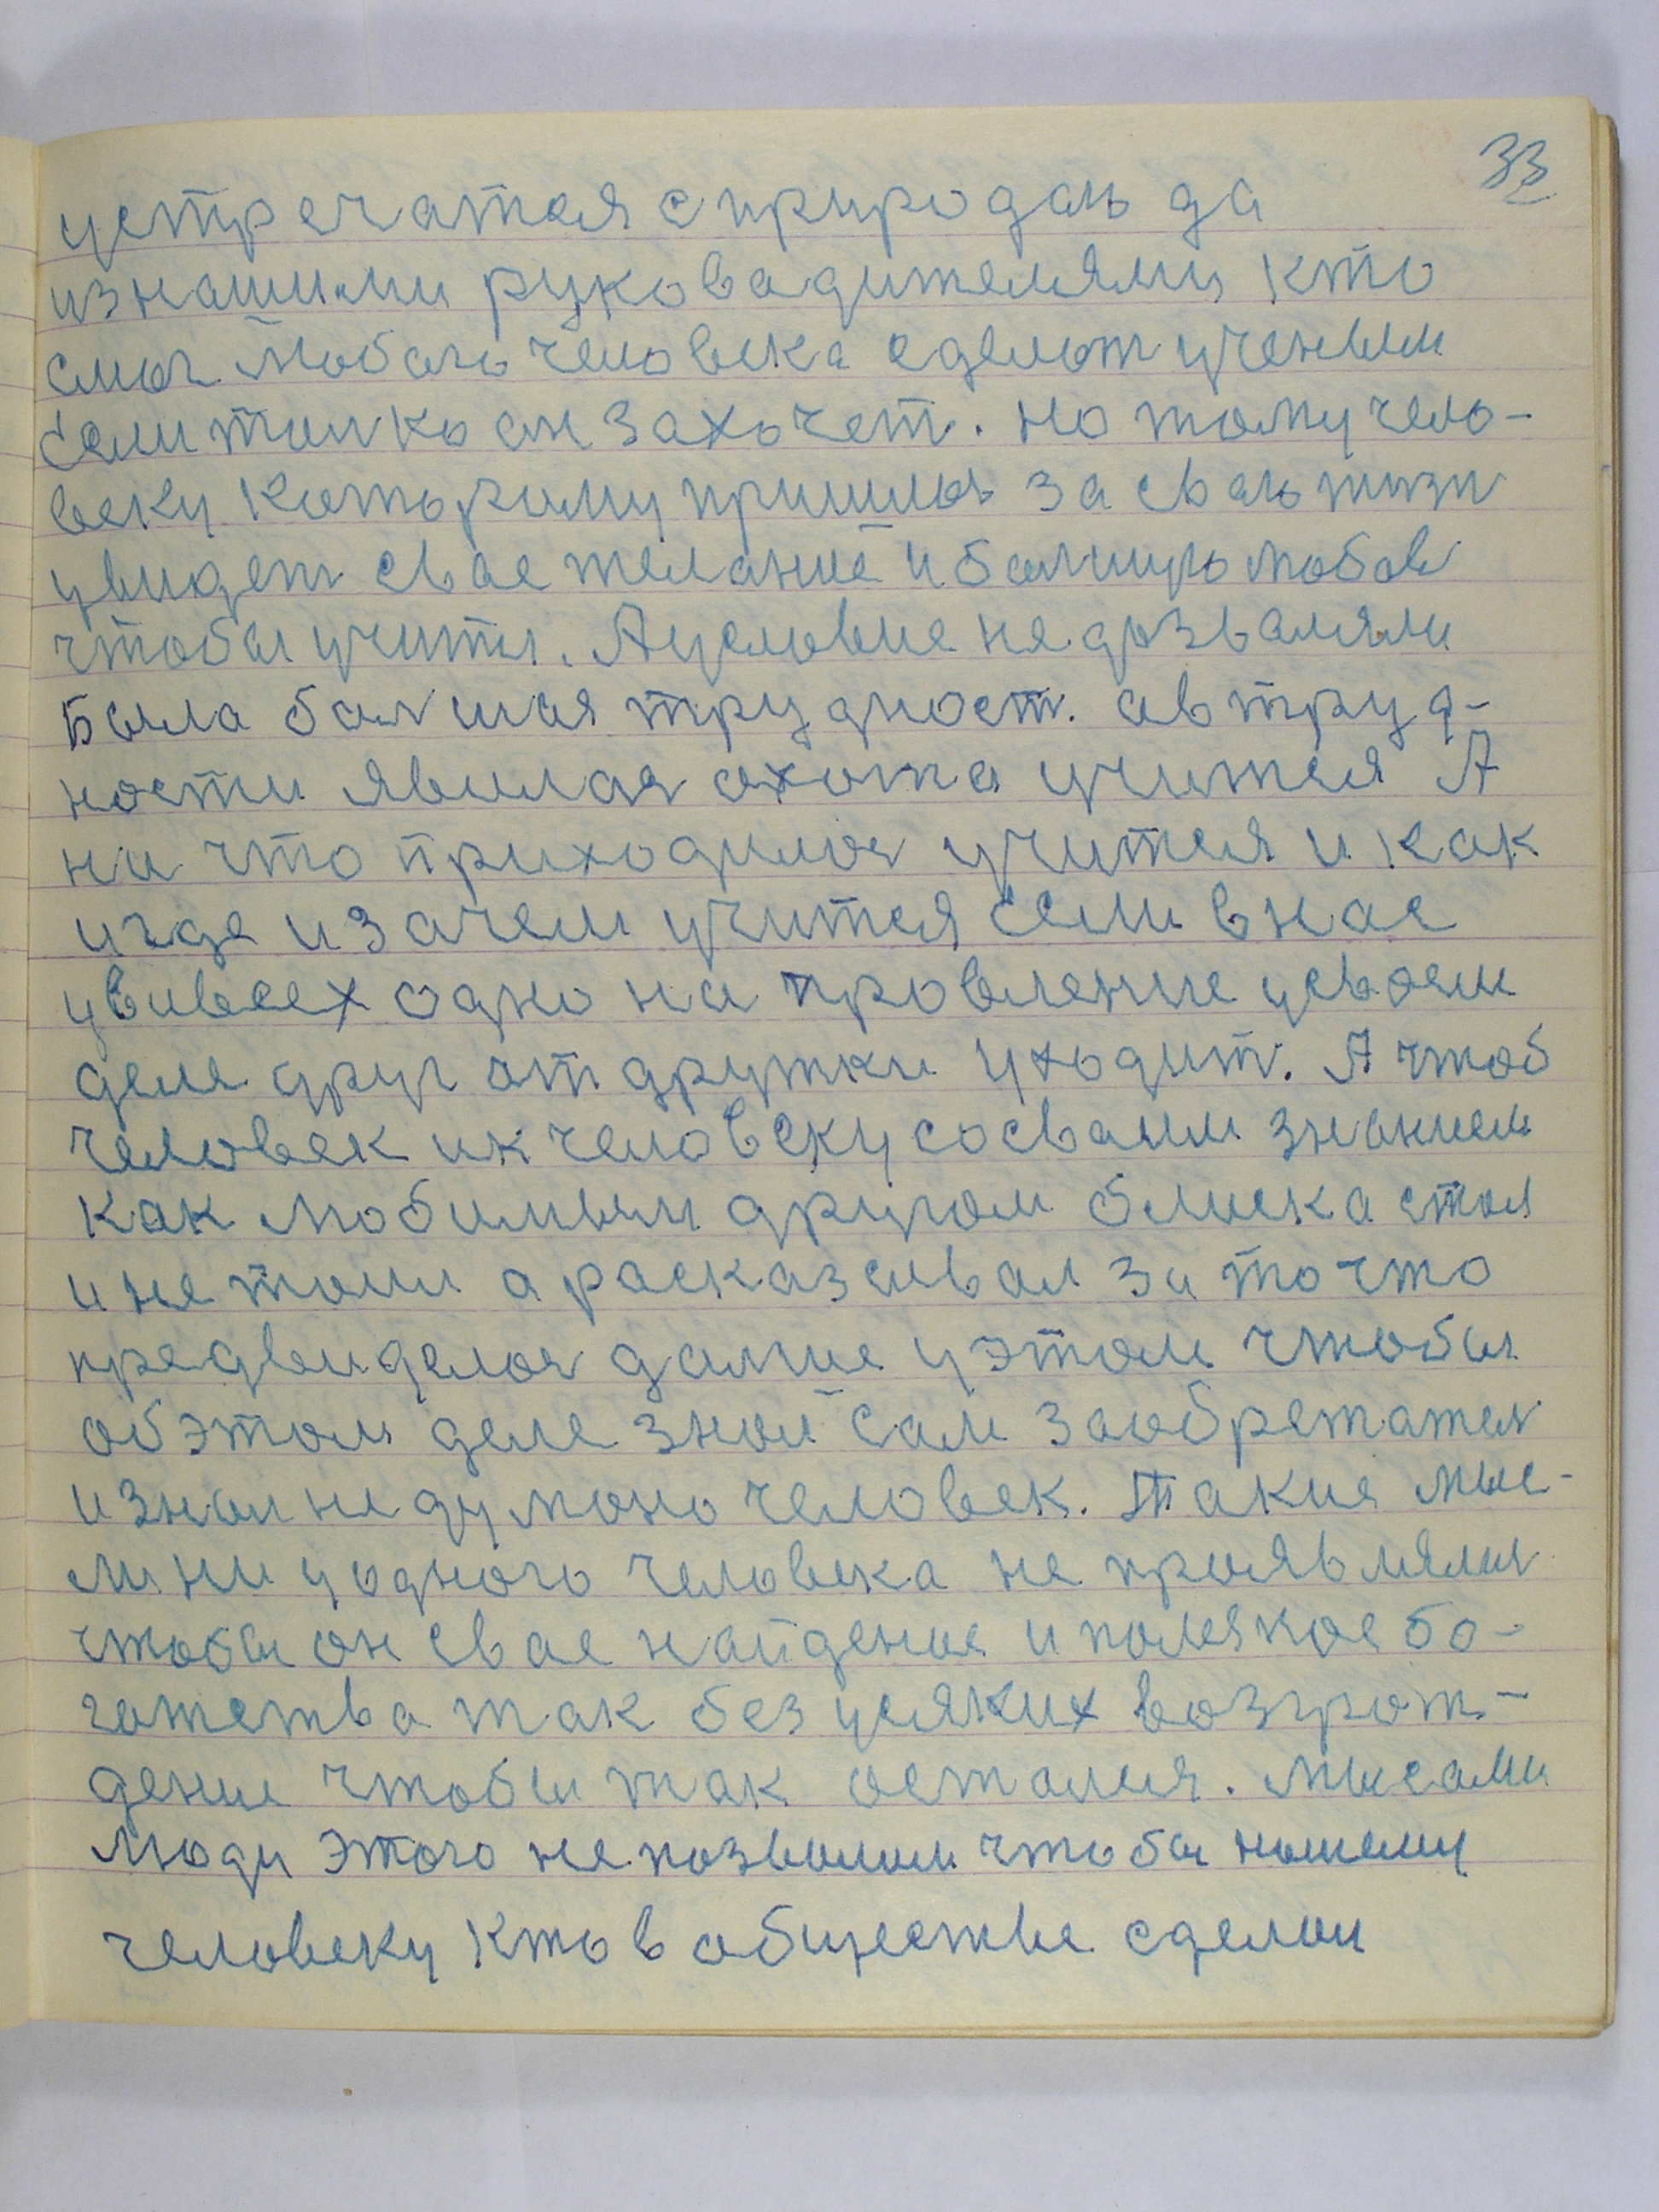 33
устречатся с природаю да
из нашими руковадителями кто
смог любого человека сделат ученым
если толко он захочет. но тому чело-
веку которому пришлос за сваю жизн
увидет свае желание и болшую любов
чтобы учитя. А условие не дозваляли
Была болшая трудност. а в труд-
ности явилася охота учится А
на что приходилос учится и как
и где и зачем учится если в нас
у ви всех одно на провление у своем
деле друг от дружки уходит. А чтоб
человек и к человеку со сваим знанием
как любимым другом близка стоял
и не тоил а расказывал за то что
предвиделос далше у этом чтобы
об этом деле зной сам заобретател
и знал не думоно человек. Такие мыс-
ли ни у одного человека не проявлялис
чтобы он свае найденое и полезное бо-
гатства так без усяких возгрож-
дение чтобы так остался. мы сами
люди этого не позволим чтобы нашему
человеку кто в обществе сделал